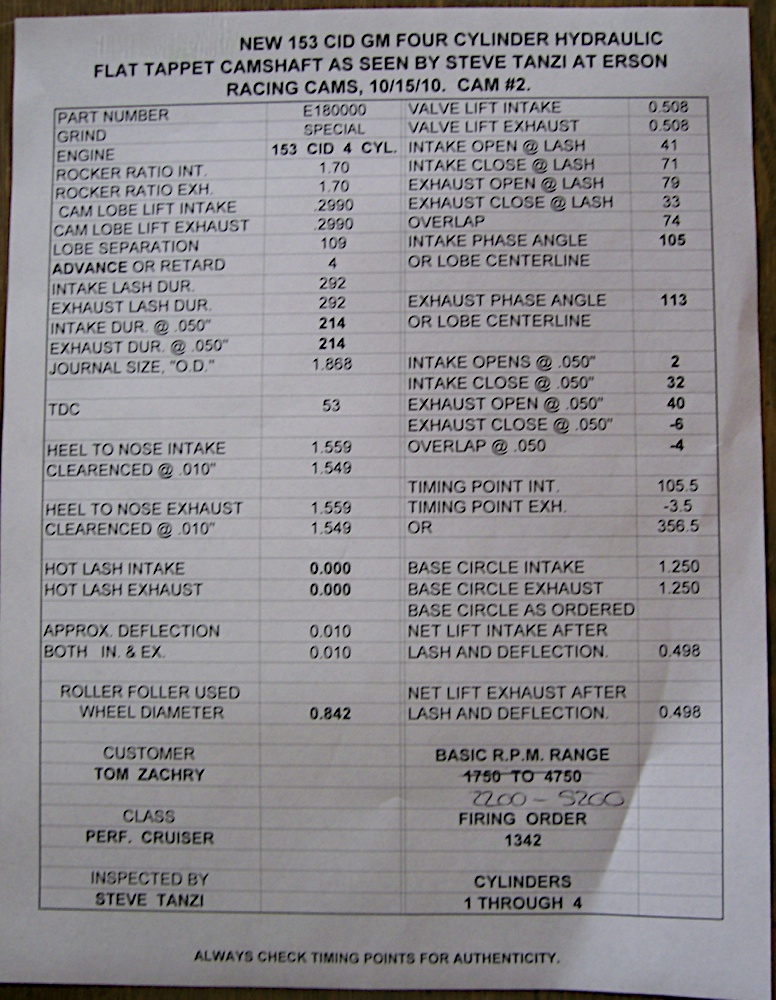 NEW 153 CID GM FOUR CYLINDER HYDRAULIC
FLAT TAPPET CAMSHAFT AS SEEN BY STEVE TANZI AT ERSON
RACING CAMS, 10/15/10. CAM #2.
PART NUMBER E180000 VALVE LIFT INTAKE 0.508
GRIND SPECIAL VALVE LIFT EXHAUST 0.508
ENGINE 153 CID 4 CYL. INTAKE OPEN @ LASH 41
ROCKER RATIO INT. 1.70 INTAKE CLOSE @ LASH 71
ROCKER RATIO EXH. 1.70 EXHAUST OPEN @ LASH 79
CAM LOBE LIFT INTAKE .2990 EXHAUST CLOSE @ LASH 33
CAM LOBE LIFT EXHAUST .2990 OVERLAP 74
LOBE SEPARATION 109 INTAKE PHASE ANGLE 105
ADVANCE OR RETARD 4 OR LOBE CENTERLINE
INTAKE LASH DUR. 292
EXHAUST LASH DUR. 292 EXHAUST PHASE ANGLE 113
INTAKE DUR. @ .050" 214 OR LOBE CENTERLINE
EXHAUST DUR. @ .050" 214
JOURNAL SIZE, "O.D." 1.868 INTAKE OPENS @ .050" 2
INTAKE CLOSE @ .050" 32
TDC 53 EXHAUST OPEN @ .050" 40
EXHAUST CLOSE @ .050" -6
HEEL TO NOSE INTAKE 1.559 OVERLAP @ .050 -4
CLEARENCED @ .010" 1.549
TIMING POINT INT. 105.5
HEEL TO NOSE EXHAUST 1.559 TIMING POINT EXH. -3.5
CLEARENCED @ .010" 1.549 OR 356.5
HOT LASH INTAKE 0.000 BASE CIRCLE INTAKE 1.250
HOT LASH EXHAUST 0.000 BASE CIRCLE EXHAUST 1.250
BASE CIRCLE AS ORDERED
APPROX. DEFLECTION 0.010 NET LIFT INTAKE AFTER
BOTH IN. & EX. 0.010 LASH AND DEFLECTION. 0.498
ROLLER FOLLER USED NET LIFT EXHAUST AFTER
WHEEL DIAMETER 0.842 LASH AND DEFLECTION. 0.498
CUSTOMER BASIC R.P.M. RANGE
TOM ZACHRY 1750 TO 4750
2200 - 5200
CLASS FIRING ORDER
PERF. CRUISER 1342
INSPECTED BY CYLINDERS
STEVE TANZI 1 THROUGH 4
ALWAYS CHECK TIMING POINTS FOR AUTHENTICITY.